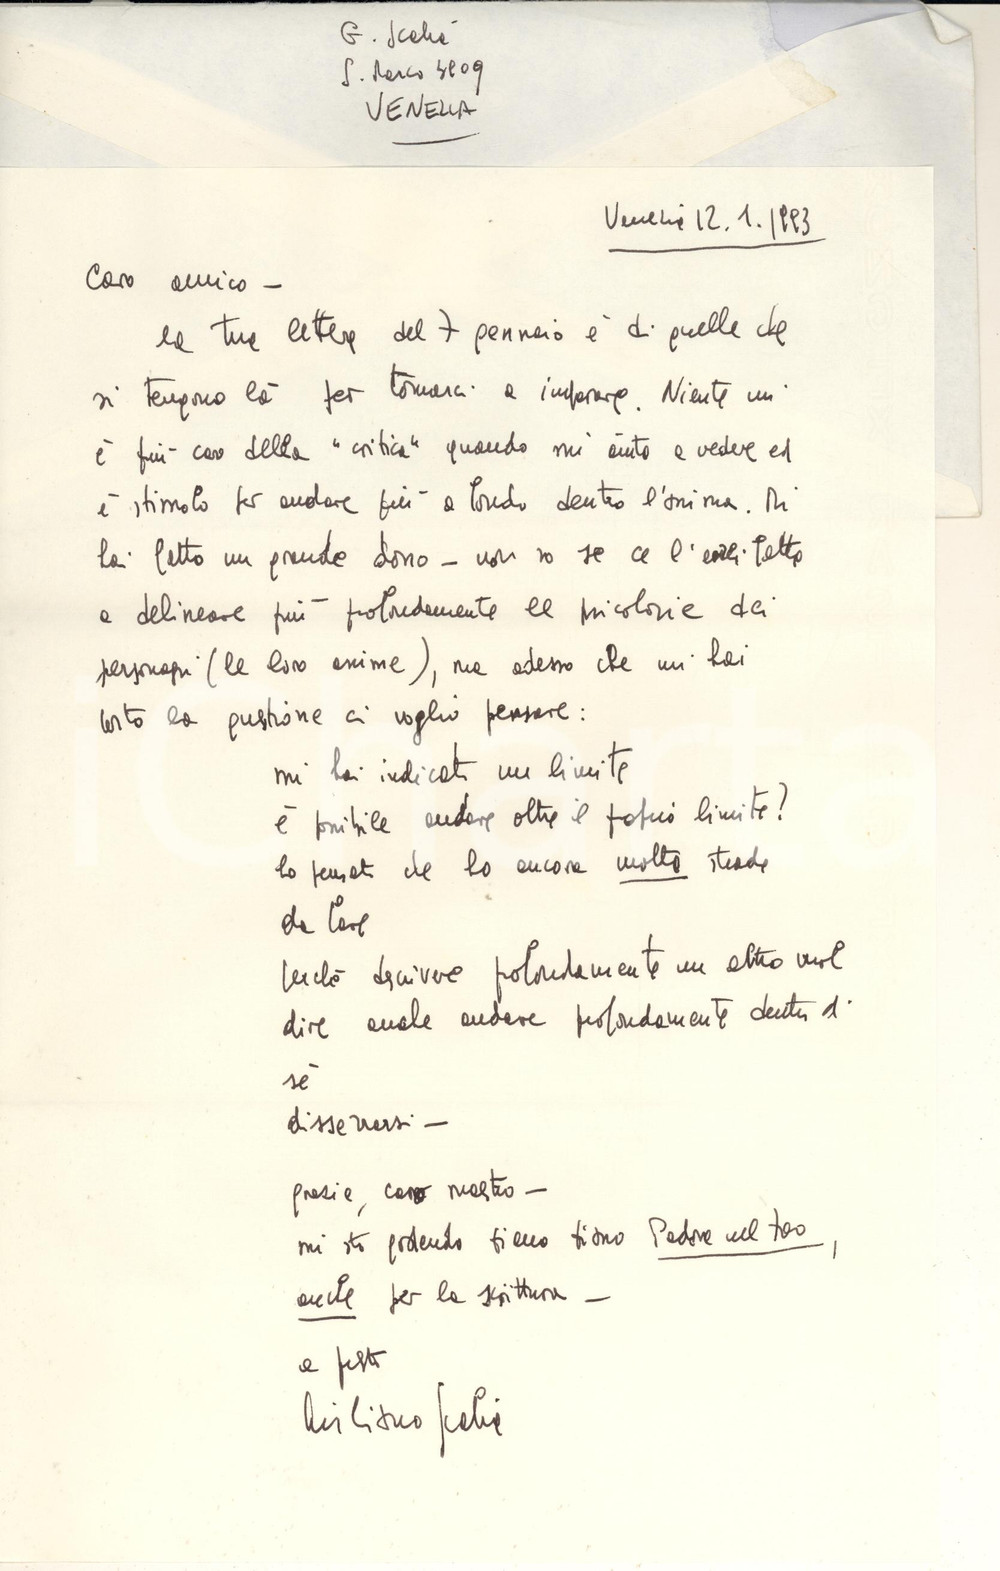 G. Scabia
S. Marco 3909
VENEZIA
Venezia 12.1.1993
Caro amico –
la tua lettera del 7 gennaio è di quelle che
si tengono là per tornarci a imparare. Niente mi
è più caro della "critica" quando mi aiuta a vedere ed
è stimolo per andare più a fondo dentro l'anima. Mi
hai fatto un grande dono – non so se ce l'
a delineare più profondamente le psicologie dei
personaggi (le loro anime), ma adesso che mi hai
posto la questione ci voglio pensare:
mi hai indicato un limite
è possibile andare oltre il proprio limite?
ho pensato che ho ancora molta strada
da fare
perché descrivere profondamente un altro vuol
dire anche andare profondamente dentro di
sé
disserrarsi –
grazie, caro maestro –
mi sto godendo piano piano Padova nel 700,
anche per la scrittura –
a presto
Giuliano Scabia